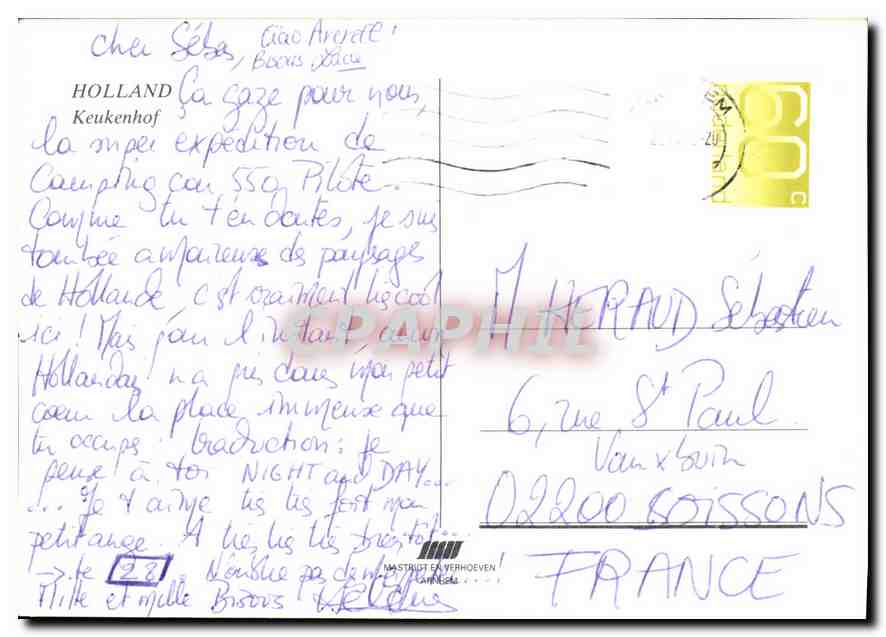 Cher Sébas, Ciao
Bisous
HOLLAND
Keukenhof
Ça gaze pour nous,
la super expédition de
Camping car 55g Pilote.
Comme tu t'en doutes, je suis
tombée amoureuse des paysages
de Hollande c'est vraiment très cool
ici ! Mais pour l'instant, aucun
Hollandais n'a pris dans mon petit
coeur la place immense que
tu occupes. traduction : Je
pense à toi NIGHT and DAY...
... Je t'aime très très fort mon
petit ange. A très très très bientôt...
→ te 22 N'oublie pas de
Mille et mille Bisous
60 c
CPAPHIL
M HERAUD Sébastien
6, rue St Paul
Vauxbuin
02200 SOISSONS
FRANCE
MASTRIGT EN VERHOEVEN
ARNHEM